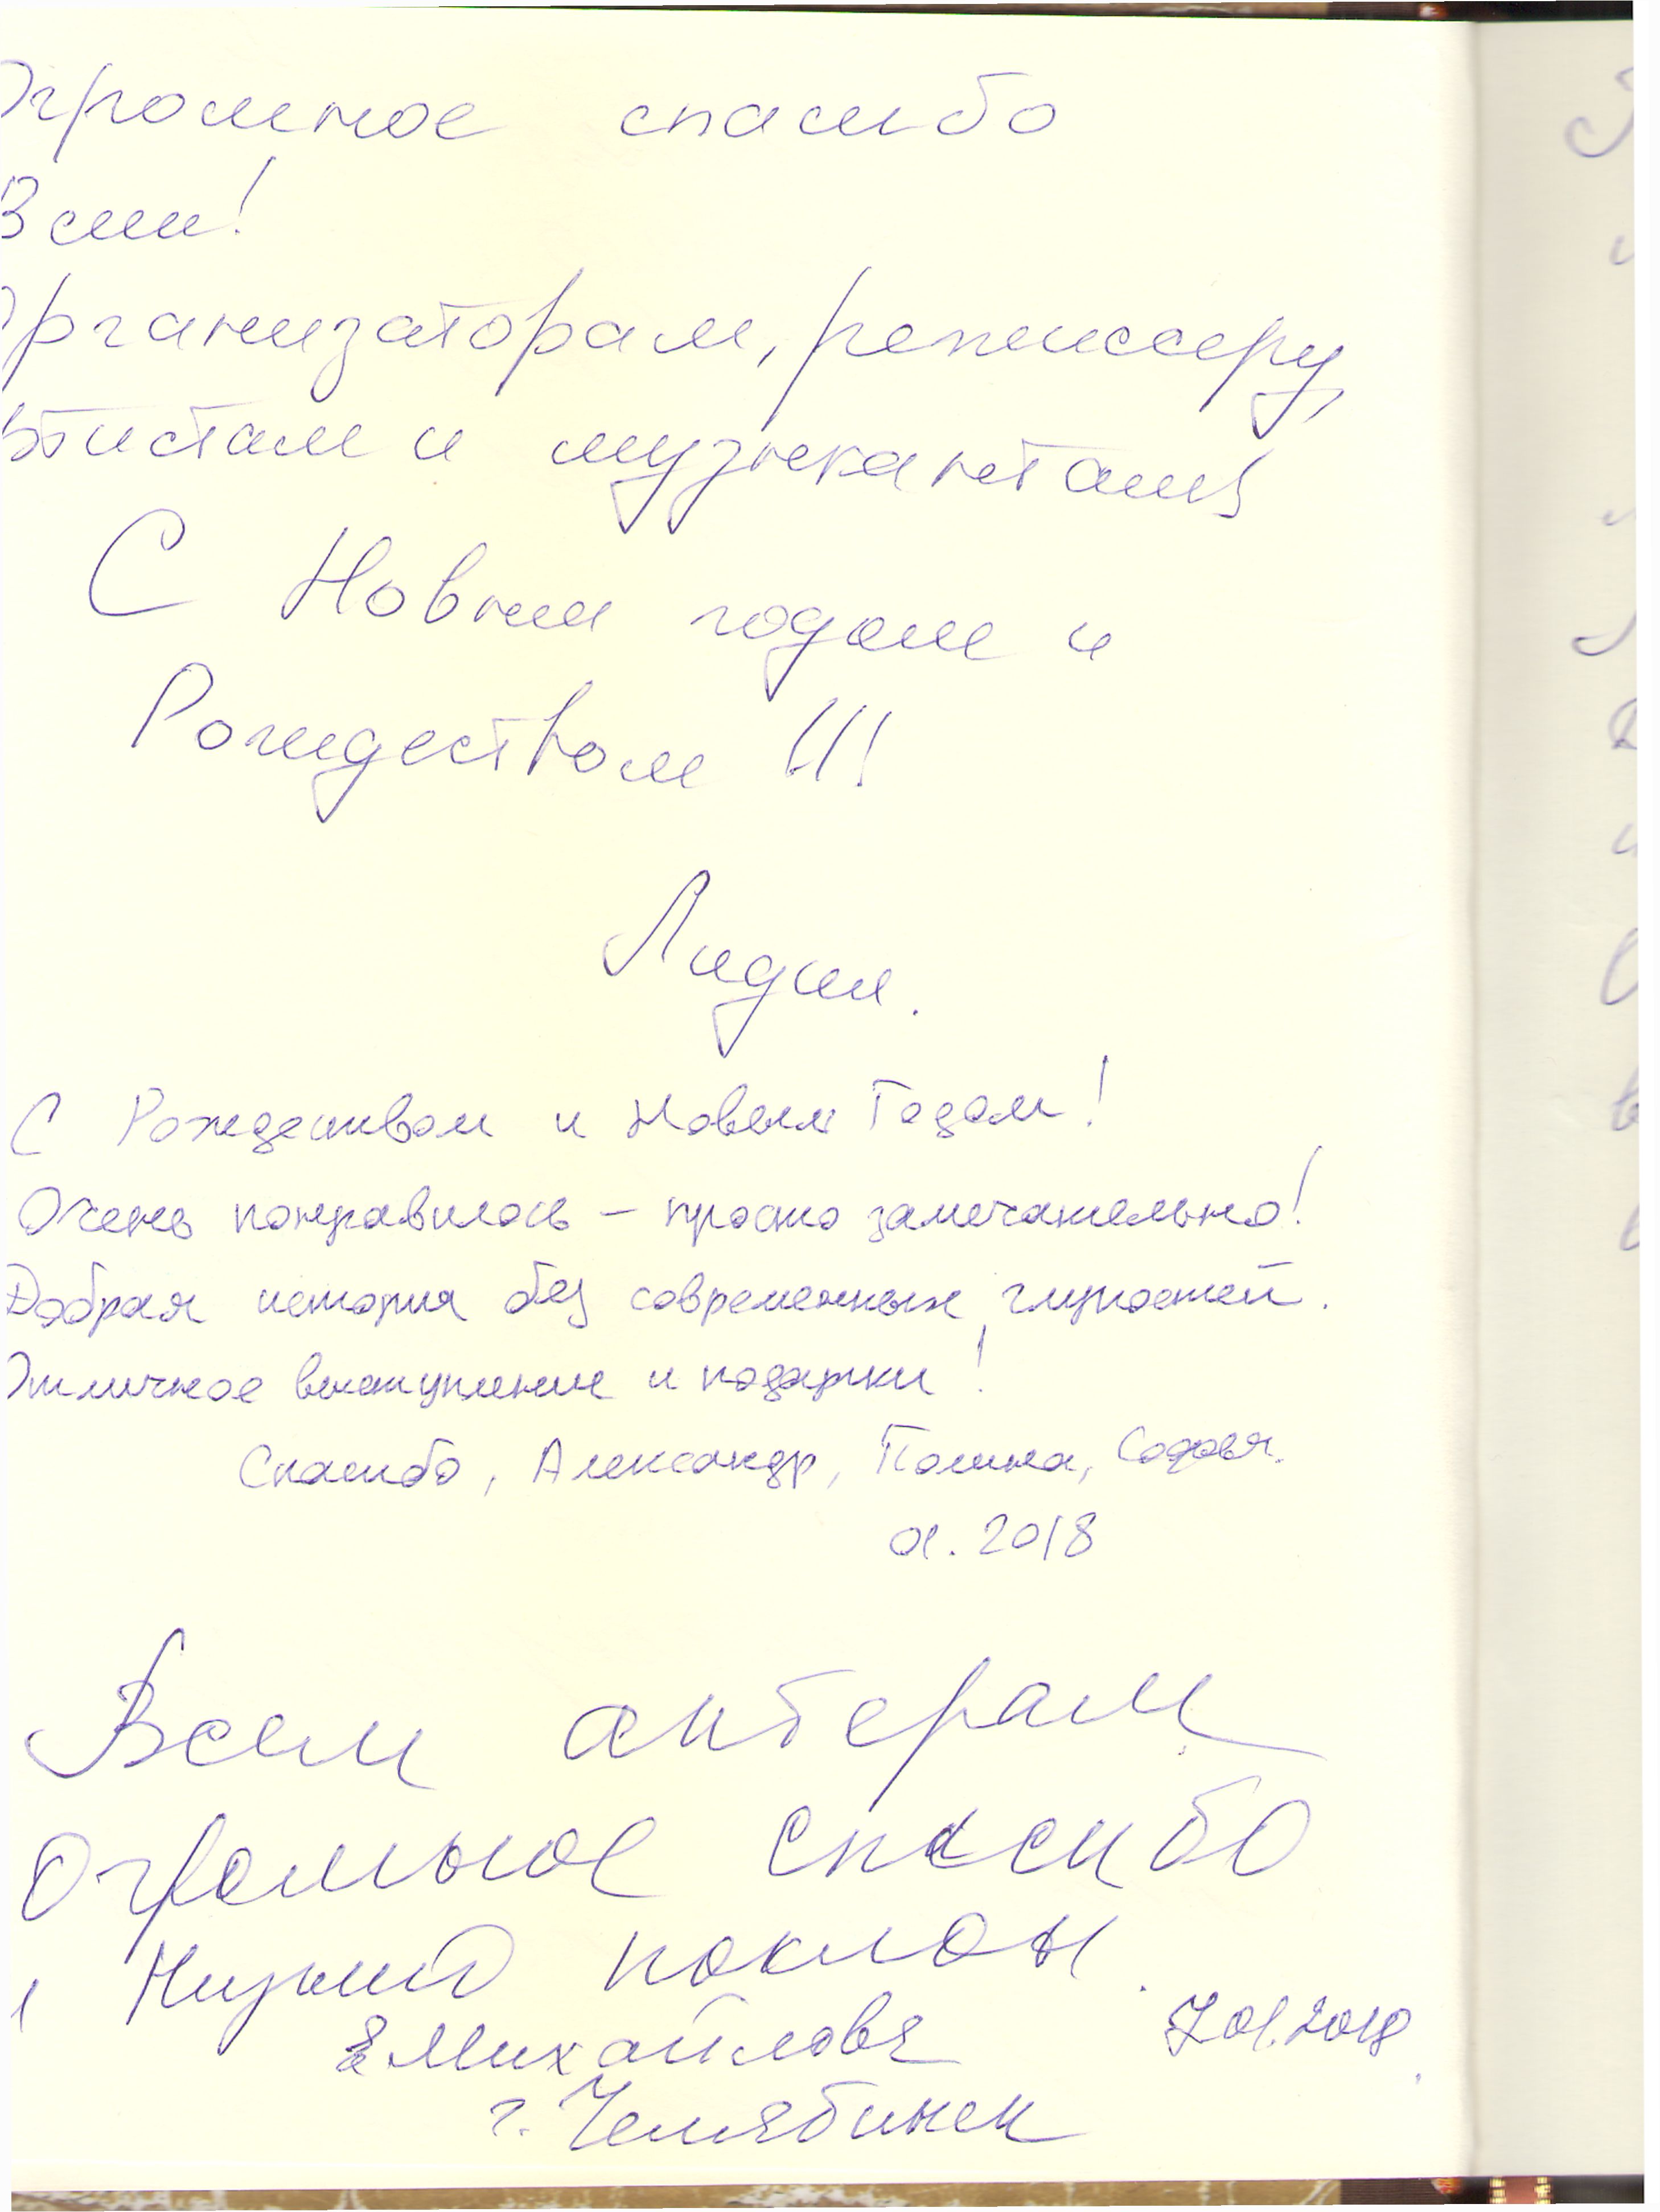 Огромное спасибо
Всем!
Организаторам, режиссеру,
артистам и музыкантам
С Новым годом и
Рождеством !!!
Лидия.
С Рождеством и Новым Годом!
Очень понравилось – просто замечательно!
Добрая история без современных глупостей.
Отличное выступление и подарки!
Спасибо, Александр, Полина, Софья.
01.2018
Всем актерам
Огромное спасибо
и Низкий поклон.
Михайлова 7.01.2018
г. Челябинск